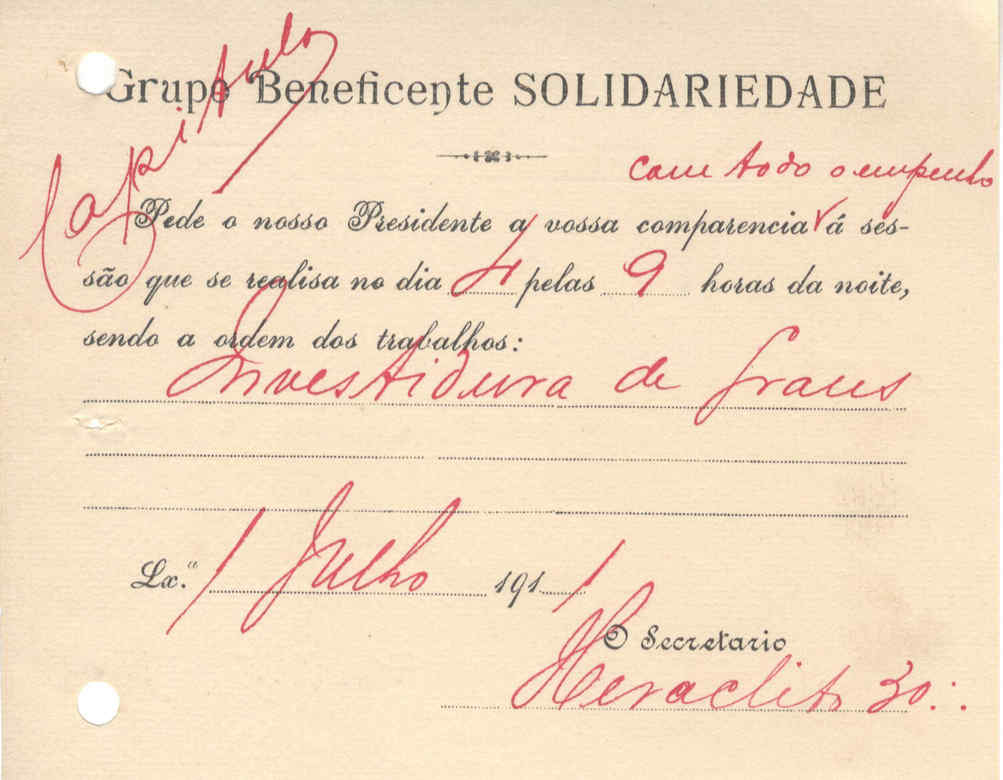 Capitulo
Grupo Beneficente SOLIDARIEDADE
com todo o empenho
Pede o nosso Presidente a vossa comparencia √ á ses-
são que se realisa no dia 4 pelas 9 horas da noite,
sendo a ordem dos trabalhos:
Investidura de Graus
Lx.ª 1 Julho 1911
O Secretario
Heraclito 30∴